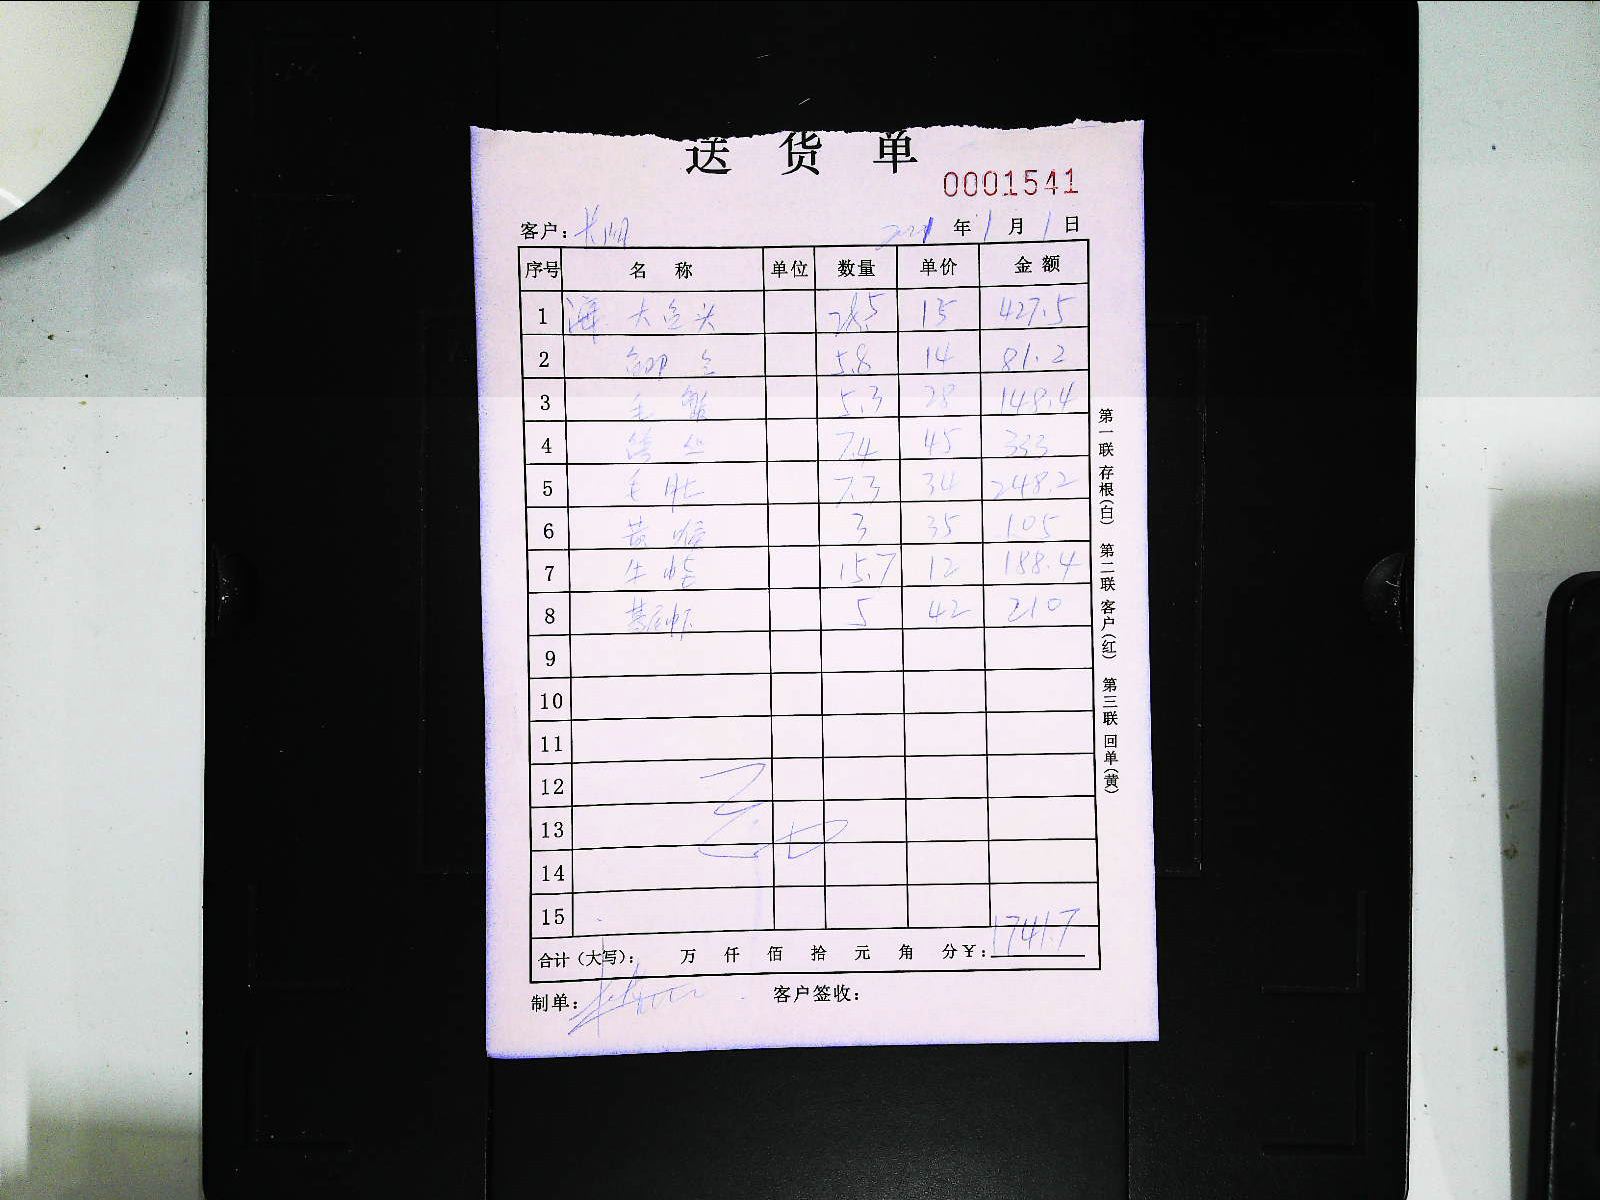 送 货 单
0001541
客户: 2021 年 1 月 1 日
序号 名 称 单位 数量 单价 金 额
1 大鱼头 28.5 15 427.5
2 5.8 14 81.2
3 毛 5.3 28 148.4
4 7.4 45 333
5 毛肚 7.3 34 248.2
6 黄喉 3 35 105
7 15.7 12 188.4
8 5 42 210
9
10
11
12
13
14
15
合计(大写): 万 仟 佰 拾 元 角 分 ¥: 1741.7
制单: 客户签收:
第一联 存根(白) 第二联 客户(红) 第三联 回单(黄)